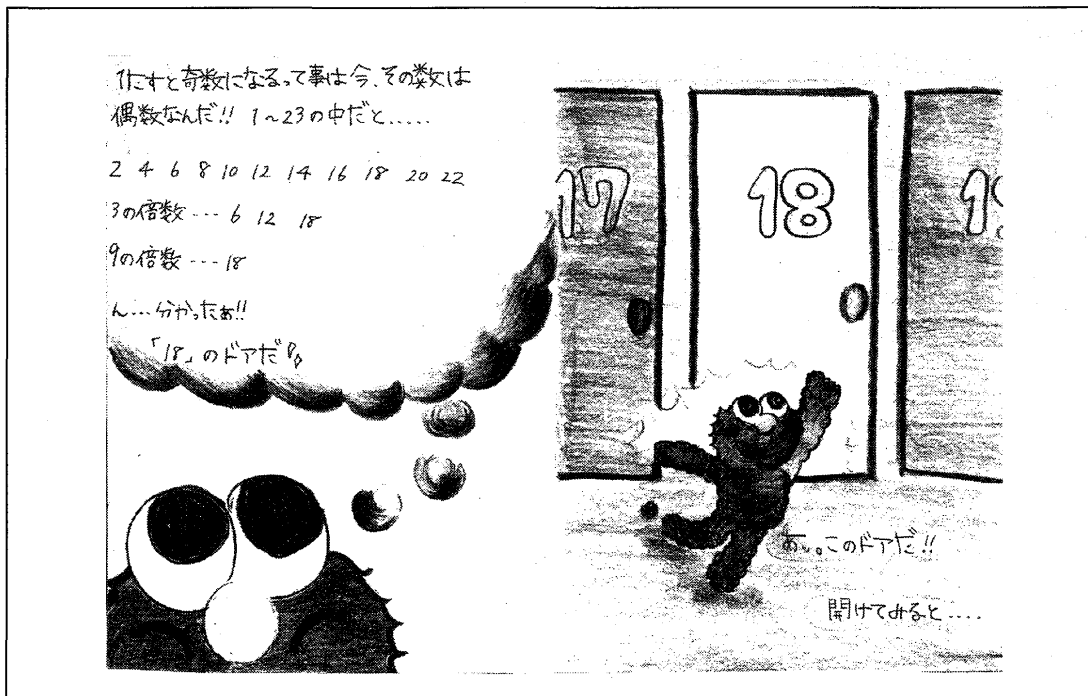 1たすと奇数になるって事は今、その数は
偶数なんだ!! 1～23の中だと.....
2 4 6 8 10 12 14 16 18 20 22
3の倍数... 6 12 18
9の倍数... 18
ん...分かったぁ!!
「18」のドアだ!!
17
18
あっ。このドアだ!!
開けてみると....